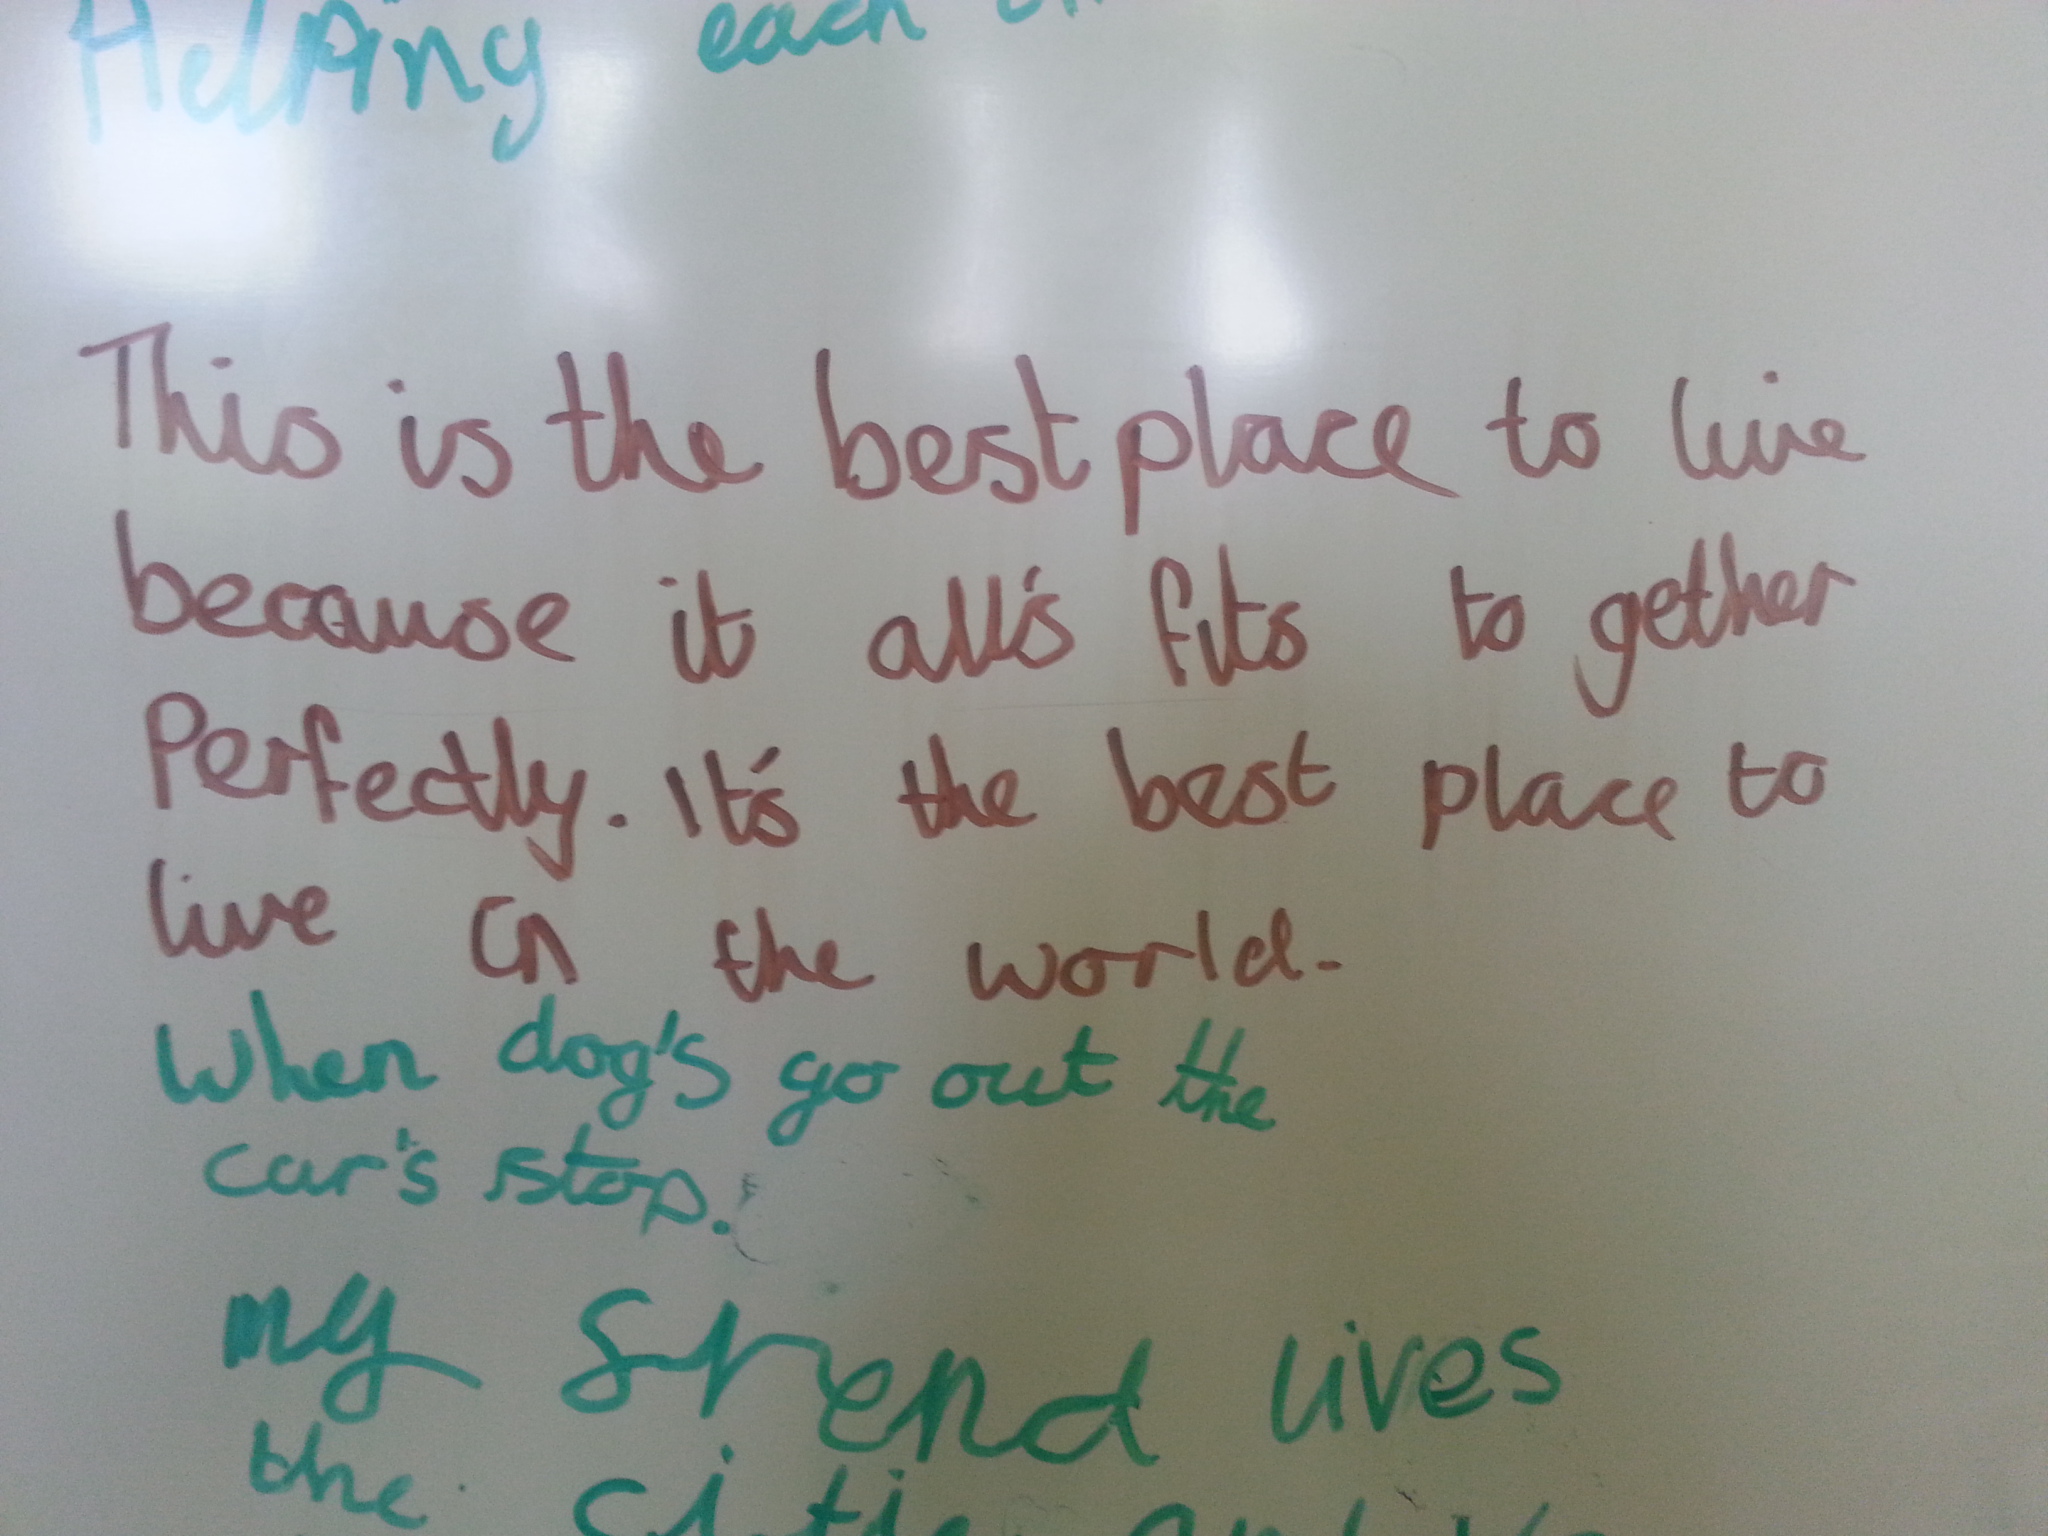 Helping each
This is the best place to live
because it all's fits to gether
Perfectly. It's the best place to
live in the world.
When dog's go out the
car's stop.
my frend lives
the